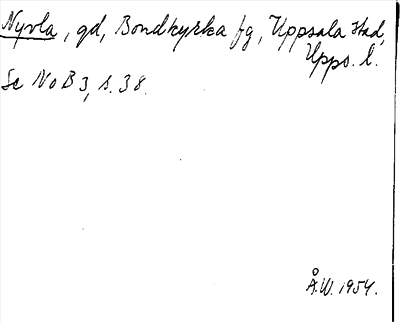 Nyvla, gd, Bondkyrka fg, Uppsala stad,
Upps. l.
Se NoB 3, s. 38.
Å.W. 1954.